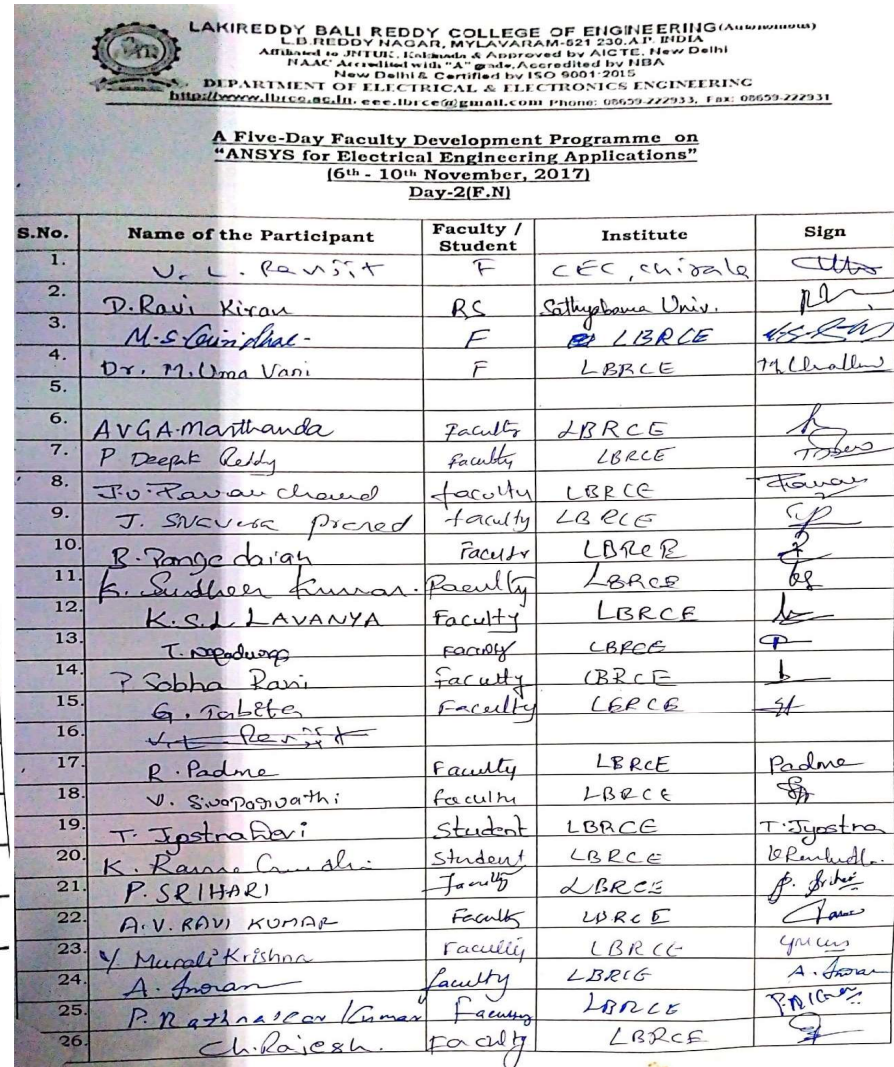 LAKIREDDY BALI REDDY COLLEGE OF ENGINEERING (Autonomous)
L.B.REDDY NAGAR, MYLAVARAM-521 230.A.P. INDIA
Affiliated to JNTUK, Kakinada & Approved by AICTE, New Delhi
NAAC Accredited with "A" grade, Accredited by NBA
New Delhi & Certified by ISO 9001:2015
DEPARTMENT OF ELECTRICAL & ELECTRONICS ENGINEERING
http://www.lbrce.ac.in, eee.lbrce@gmail.com Phone: 08659-222933, Fax: 08659-222931
A Five-Day Faculty Development Programme on
"ANSYS for Electrical Engineering Applications"
(6th - 10th November, 2017)
Day-2(F.N)
S.No. Name of the Participant Faculty / Student Institute Sign
1. V. L. Ravjit F CEC, chirala
2. D. Ravi Kiran RS Sathyabama Univ.
3. M.S. F LBRCE
4. Dr. M. Uma Vani F LBRCE
5.
6. AVGA. Marthanda Faculty LBRCE
7. P Deepak Reddy Faculty LBRCE
8. J.V. Pavan chand faculty LBRCE Pavan
9. J. faculty LBRCE
10. B. Faculty LBRCE
11. K. Sudheer Kumar. Faculty LBRCE
12. K.S.L. LAVANYA Faculty LBRCE
13. T. Faculty LBRCE
14. P Sobha Rani Faculty LBRCE
15. G. Tabita Faculty LBRCE
16.
17. R. Padma Faculty LBRCE Padma
18. V. Sivaparvathi faculty LBRCE
19. T. Jyostna Devi Student LBRCE T. Jyostna
20. K. Student LBRCE
21. P. SRIHARI Faculty LBRCE P. Srihari
22. A.V. RAVI KUMAR Faculty LBRCE
23. Y. Murali Krishna Faculty LBRCE
24. A. faculty LBRCE A.
25. P. Kumar Faculty LBRCE
26. Ch. Rajesh. Faculty LBRCE